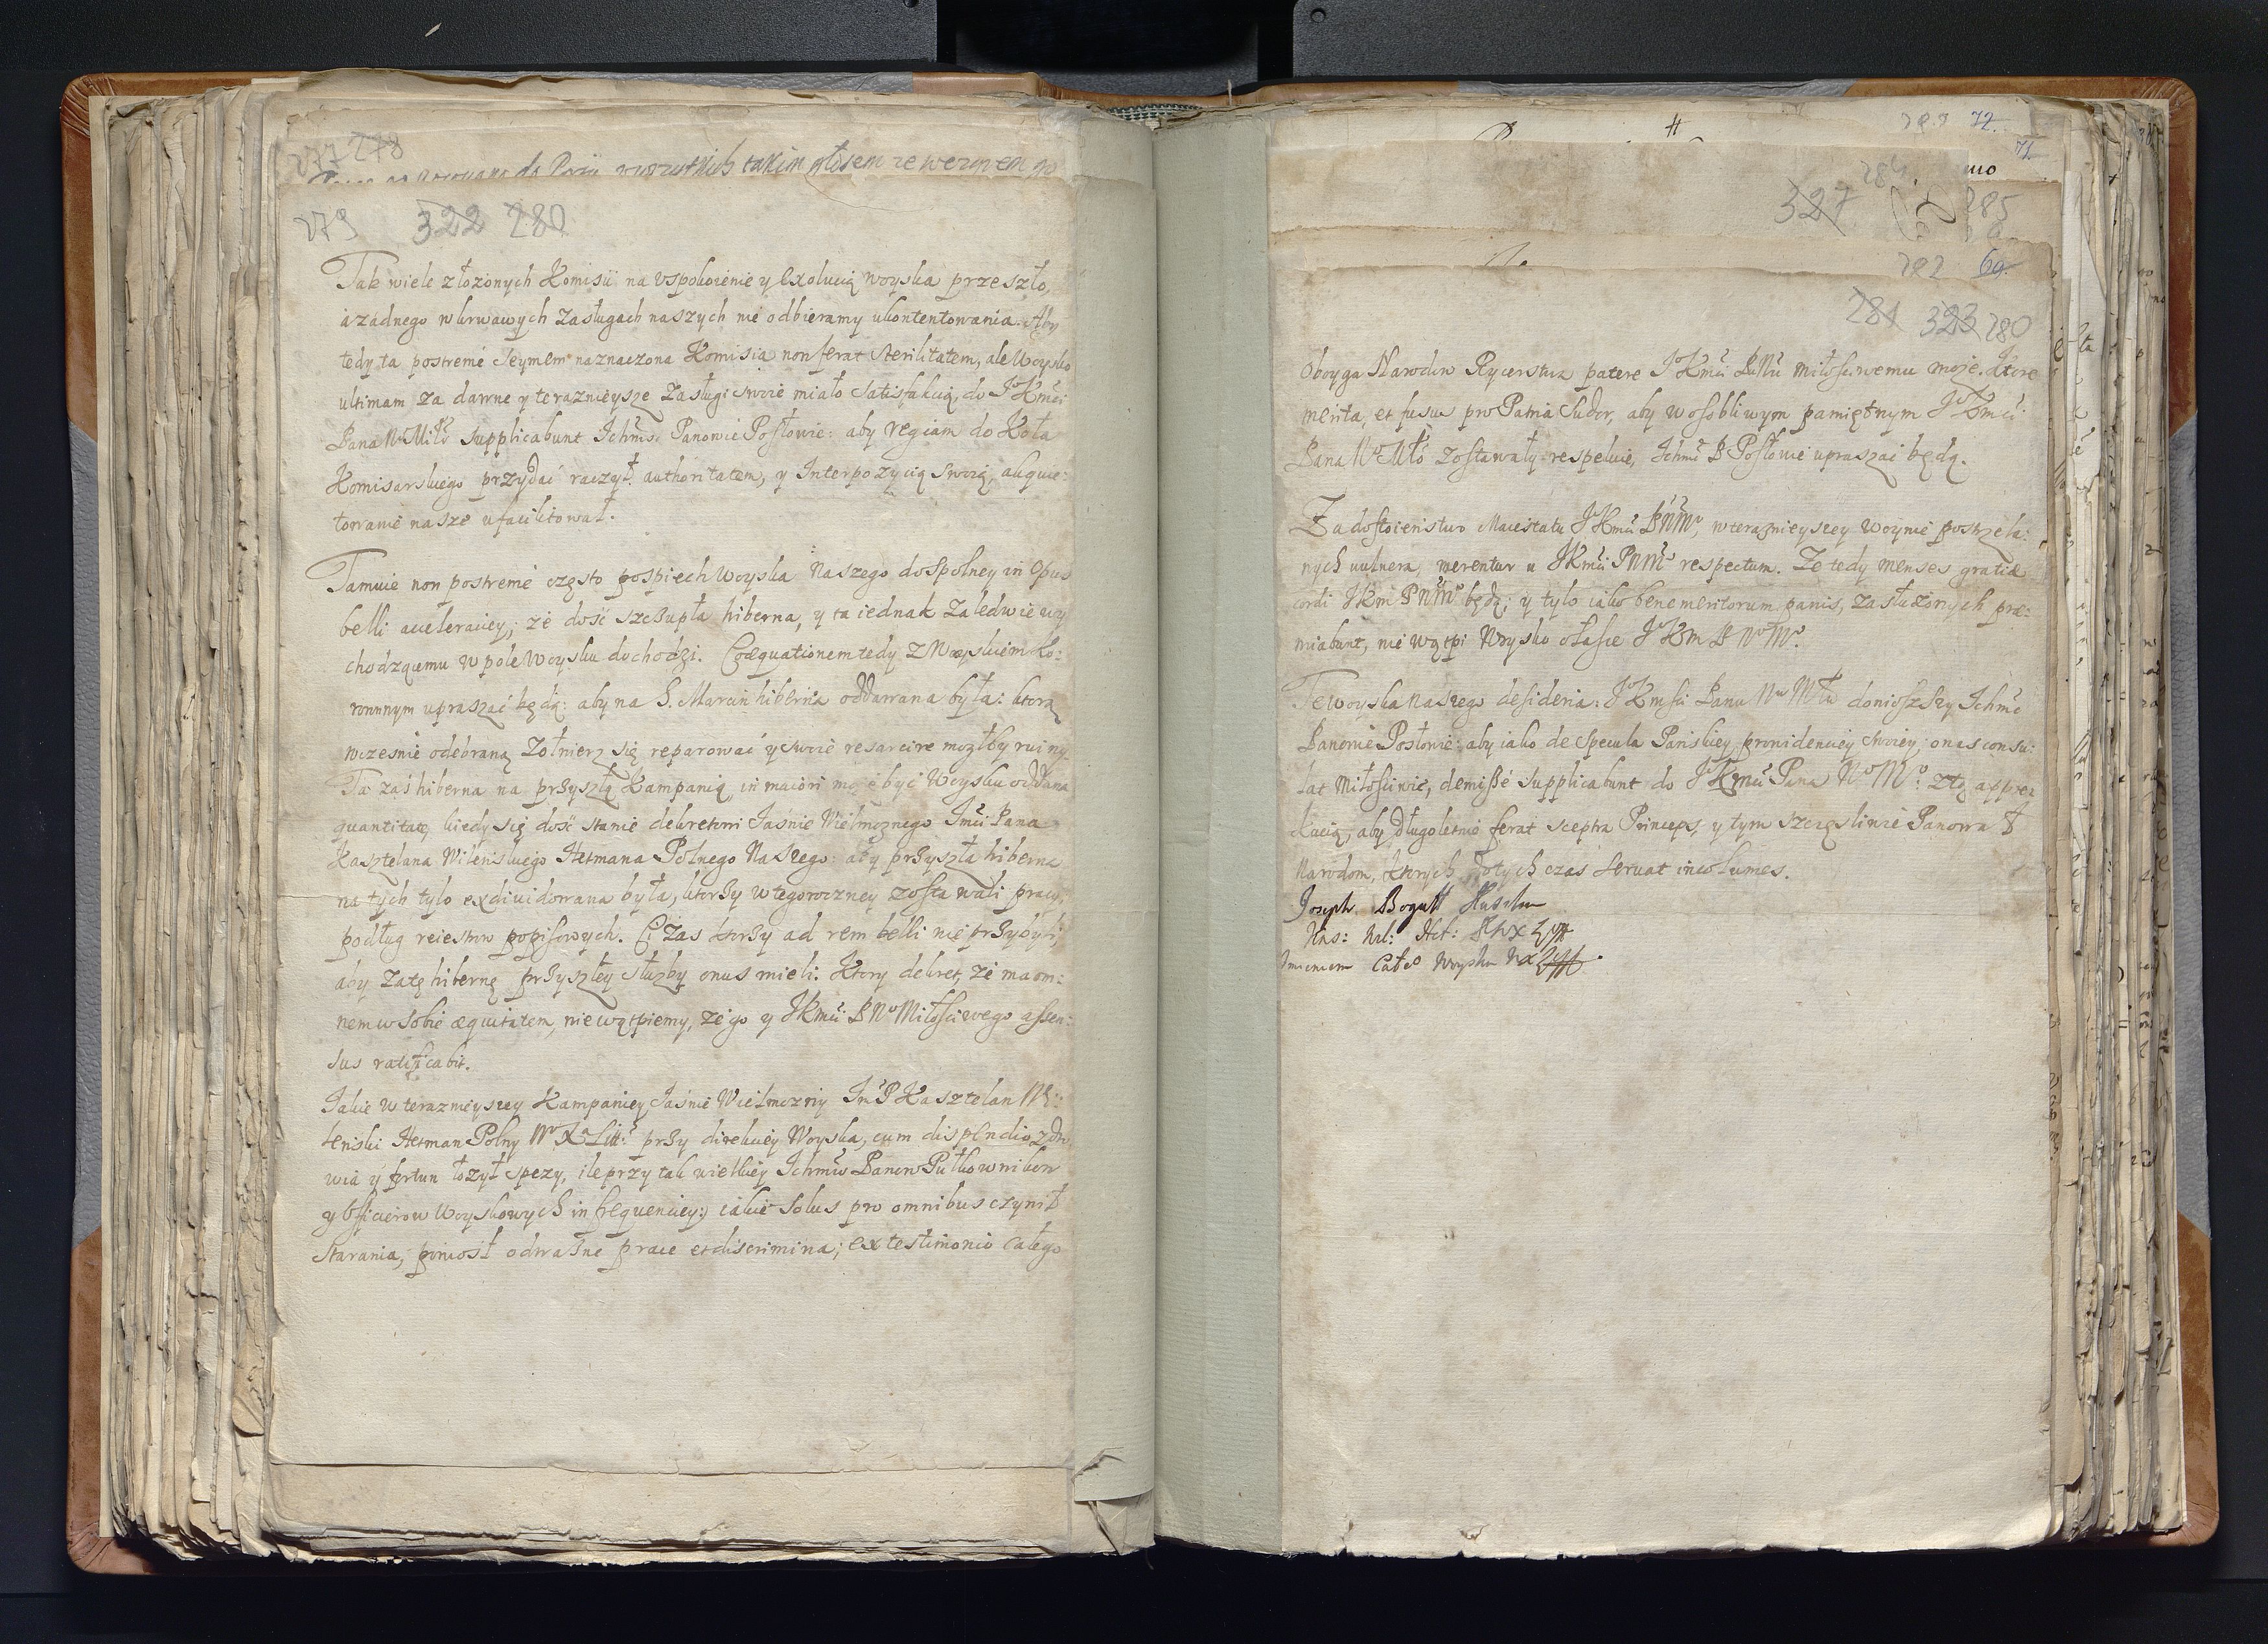 277 278
do wszystkich takim głosem
279 322 280
Tak wiele złożonych Komisii na uspokoienie y exolucią woyska przeszło,
a żadnego w krwawych zasługach naszych nie odbieramy ukontentowania. Aby
tedy ta postremé Seymem naznaczona Komisia non ferat sterilitatem, ale Woysko
ultimam za dawne y teraznieysze Zasługi swoie miało satisfakcią, do JKmci
Pana N. Miłº supplicabunt Ichms. Panowie Posłowie: aby regiam do Koła
Komisarskiego przydać raczył authoritatem, y Interpozycią swoią,
towanie nasze ufacilitował.
Tamuie non postremé często pospiech Woyska Naszego do spolney in Opus
belli acceleraciey; że dość szczupła hiberna, y ta iednak Zaledwie wy
chodzącemu w pole Woysku dochodzi. Coæquationem tedy z Woyskiem Ko:
ronnym upraszać będą: aby na S. Marcin hiberna oddawana była: ktorą
wczesnie odebraną Zołnierz się reparować y swoie resarcire mogłby ruiny
Ta zaś hiberna na przyszłą Kampanią, in maiori może być Woysku oddana
quantitate, kiedy się dość stanie dekretowi Jaśnie Wielmożnego Jmci Pana
Kasztelana Wilenskiego Hetmana Polnego Naszego: aby przyszła hiberna
na tych tylo exdividowana była, ktorzy w tegoroczney zostawali pracy,
podług reiestrow popisowych. Ci zas ktorzy ad rem belli nie przybyli,
aby za tę hibernę przyszłey służby onus mieli. Ktory dekret, że ma om:
nem w sobie æquitatem, nie wątpiemy, że go y JKmci P. Nº Miłościwego assen:
sus ratificabit.
Jakie w teraznieyszey Kampaniey Jaśnie Wielmozny Jm P Kasztelan Wi:
lenski Hetman Polny Wº X Litt: przy direkciey Woyska, cum dispendio zdro
wia y fortun łożył spezy, ile przy tak wielkiey Ichmciow Panow Pułkownikow
y Officierow Woyskowych infrequenciey; iakie solus pro omnibus czynił
starania, poniosł odważne prace et discrimina; ex testimonio całego
H
72.
71.
mo
327 284. 285
282 69.
281 323 280
Oboyga Narodow Rycerstwa patere JºKmci Miłościwemu może. Ktore
merita, et fusus pro Patria Sudor, aby w osobliwym pamiętnym JºKmci
Pana Nº Młº zostawały respekcie, Ichmc P Posłowie upraszać będą.
Za dostoienstwo Maiestatu JKmci PNMº, w teraznieyszey Woynie postrzela:
nych vulnera, merentur u JKmci PNMº respectum. Że tedy menses gratiæ
cordi JKm PNMº będą; y tylo iako bene meritorum panis, zasłużonych præ:
miabunt, nie wątpi Woysko o łasce JºKm P Nº Mº.
Te Woyska Naszego desideria JºKmsci Panu Nu Młu doniosszy Ichmc
Panowie Posłowie: aby iako de specula Panskiey providenciey swoiey, o nas consu:
lat Miłościwie, demissé supplicabunt do JKmci Pana Nº Mº. z tą appre
kacią, aby długoletnie ferat sceptra Princeps, y tym szczęśliwie Panował
Narodom, ktorych dotychczas servat incolumes.
Joseph Bogusł
Imieniem Całº Woyska WX